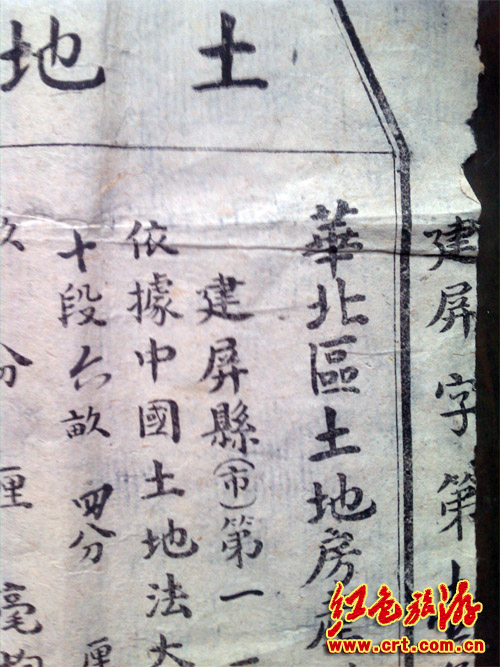 土地
建屏字第
華北區土地房産
建屏縣(市)第一
依據中國土地法大
十段六畝 四分 厘
分 厘 毫
红色旅游
www.crt.com.cn